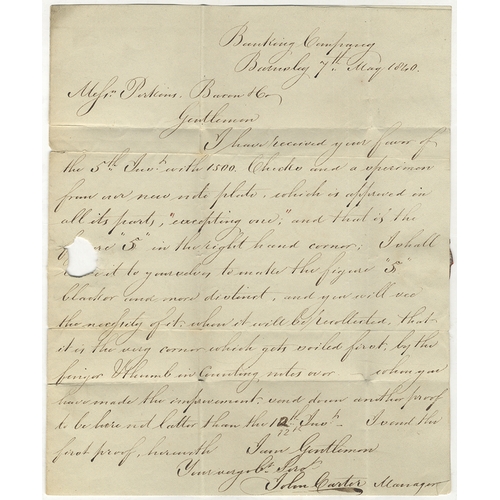 Banking Company
Barnsley 7th May 1840.
Messrs Perkins. Bacon & Co
Gentlemen
I have received your favor of
the 5th Inst with 1500. Checks and a specimen
from our new note plate, which is approved in
all its parts, "excepting one," and that is the
figure "5" in the right hand corner; I shall
it to yourselves to make the figure "5"
blacker and more distinct, and you will see
the necessity of it, when it will be recollected, that
it is the very corner which gets soiled first, by the
finger & thumb in Counting notes over when you
have made the improvement, send down another proof
to be here not latter than the 12th Inst I send the
12th
first proof, herewith I am Gentlemen
Your very obt Servt
John Carter Manager